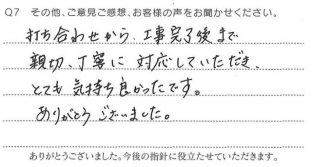 Q7 その他、ご意見ご感想、お客様の声をお聞かせください。
打ち合わせから、工事完了後まで
親切、丁寧に対応していただき、
とても気持ち良かったです。
ありがとうございました。
ありがとうございました。今後の指針に役立たせていただきます。